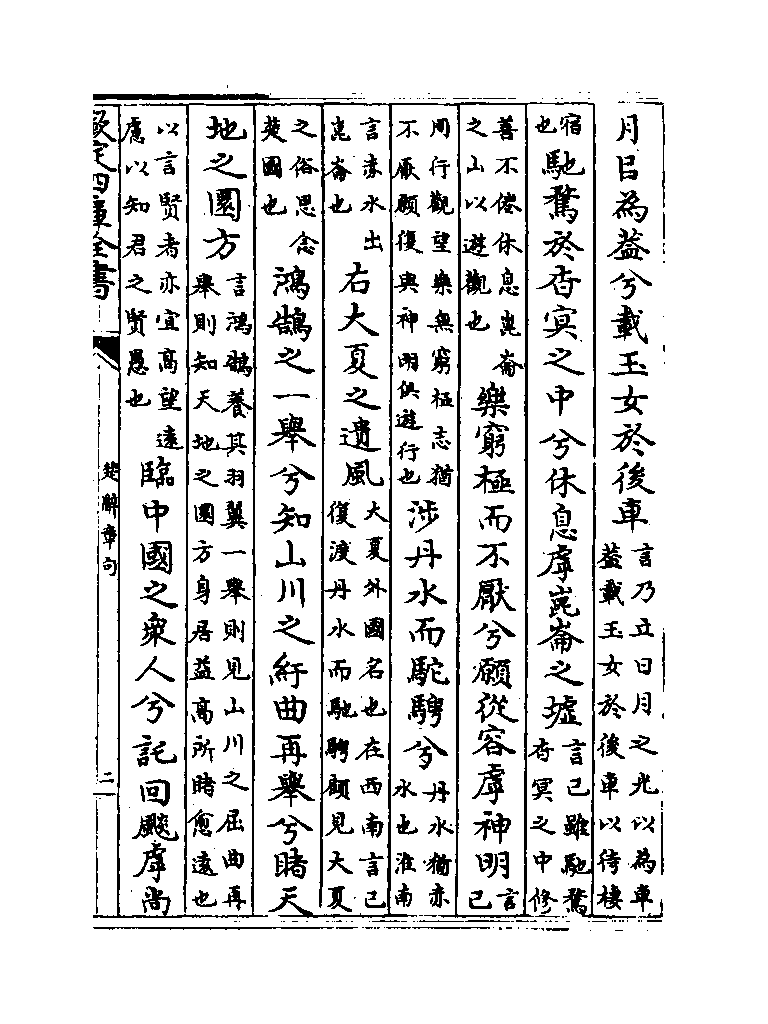 月日為葢兮載玉女於後車言乃立日月之光以為車葢載玉女於後車以待棲
宿也馳騖於杳冥之中兮休息虖崑崙之墟言己雖馳騖杳冥之中修
善不倦休息崑崙之山以遊觀也樂窮極而不厭兮願從容虖神明言己
周行觀望樂無窮極志猶不厭願復與神明俱遊行也涉丹水而駝騁兮丹水猶赤水也淮南
言赤水出崑崙也右大夏之遺風大夏外國名也在西南言己復渡丹水而馳騁顧見大夏
之俗思念楚國也鴻鵠之一舉兮知山川之紆曲再舉兮睹天
地之圜方言鴻鵠養其羽翼一舉則見山川之屈曲再舉則知天地之圜方身居益高所睹愈遠也
以言賢者亦宜高望遠慮以知君之賢愚也臨中國之衆人兮託回飈虖尚
欽定四庫全書
楚辭章句
二